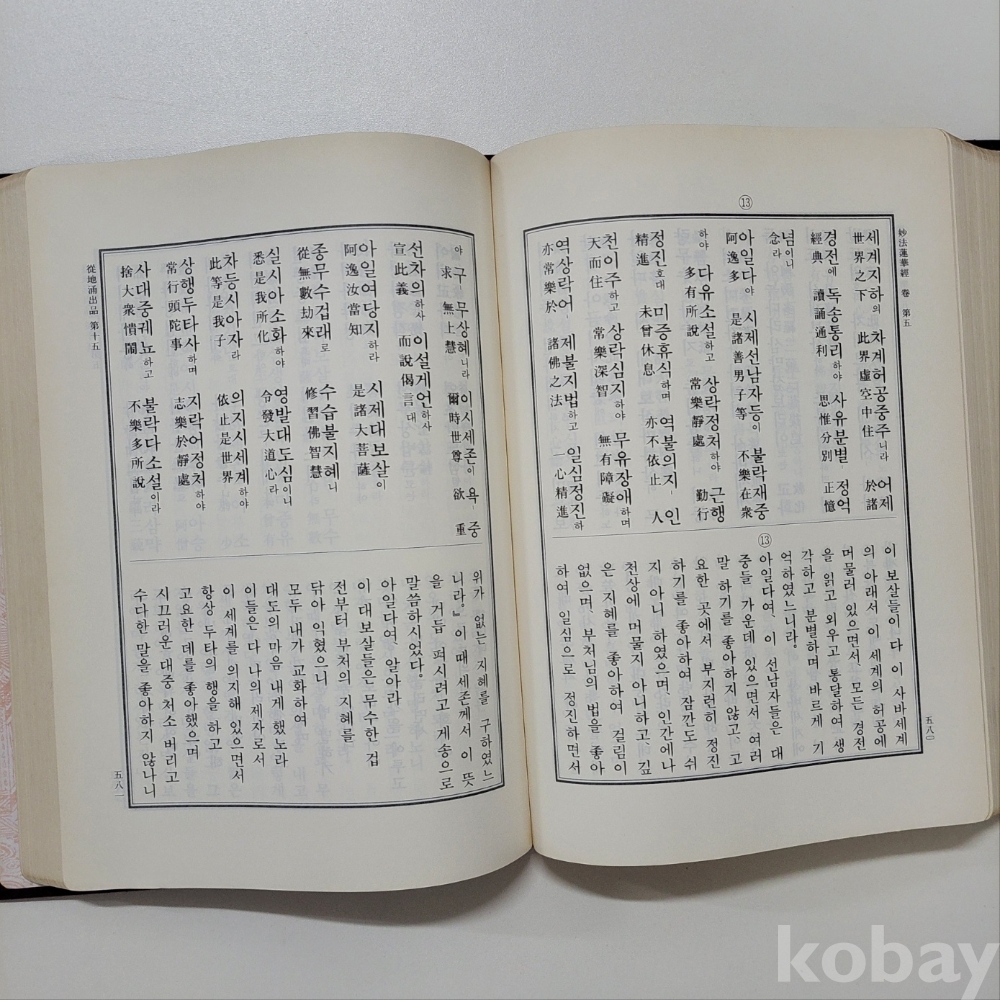 妙法蓮華經 卷 第五
⑬
세계지하의 차계허공중주니라 어제
世界之下 此界虛空中住 於諸
경전에 독송통리하야 사유분별 정억
經典 讀誦通利 思惟分別 正憶
념이니라
念
아일다야 시제선남자등이 불락재중
阿逸多 是諸善男子等 不樂在衆
하야 다유소설하고 상락정처하야 근행
多有所說 常樂靜處 勤行
정진호대 미증휴식하며 역불의지, 인
精進 未曾休息 亦不依止 人
천이주하고 상락심지하야 무유장애하며
天而住 常樂深智 無有障礙
역상락어, 제불지법하고 일심정진하
亦常樂於 諸佛之法 一心精進
⑬
이 보살들이 다 이 사바세계
의 아래서 이 세계의 허공에
머물러 있으면서, 모든 경전
을 읽고 외우고 통달하여 생
각하고 분별하며 바르게 기
억하였느니라.
아일다여, 이 선남자들은 대
중들 가운데 있으면서 여러
말 하기를 좋아하지 않고, 고
요한 곳에서 부지런히 정진
하기를 좋아하여 잠깐도 쉬
지 아니 하였으며, 인간에나
천상에 머물지 아니하고, 깊
은 지혜를 좋아하여 걸림이
없으며, 부처님의 법을 좋아
하여 일심으로 정진하면서
五八〇
야 구 무상혜니라 이시세존이 욕, 중
求 無上慧 爾時世尊 欲 重
선차의하사 이설게언하사대
宣此義 而說偈言
아일여당지하라 시제대보살이
阿逸汝當知 是諸大菩薩
종무수겁래로 수습불지혜니
從無數劫來 修習佛智慧
실시아소화하야 영발대도심이니라
悉是我所化 令發大道心
차등시아자라 의지시세계하야
此等是我子 依止是世界
상행두타사하며 지락어정처하야
常行頭陀事 志樂於靜處
사대중궤뇨하고 불락다소설이라
捨大衆憒鬧 不樂多所說
위가 없는 지혜를 구하였느
니라.』 이 때 세존께서 이 뜻
을 거듭 펴시려고 게송으로
말씀하시었다.
아일다여, 알아라
이 대보살들은 무수한 겁
전부터 부처의 지혜를
닦아 익혔으니
모두 내가 교화하여
대도의 마음 내게 했노라
이들은 다 나의 제자로서
이 세계를 의지해 있으면서
항상 두타의 행을 하고
고요한 데를 좋아했으며
시끄러운 대중 처소 버리고
수다한 말을 좋아하지 않나니
從地涌出品 第十五
五八一
kobay